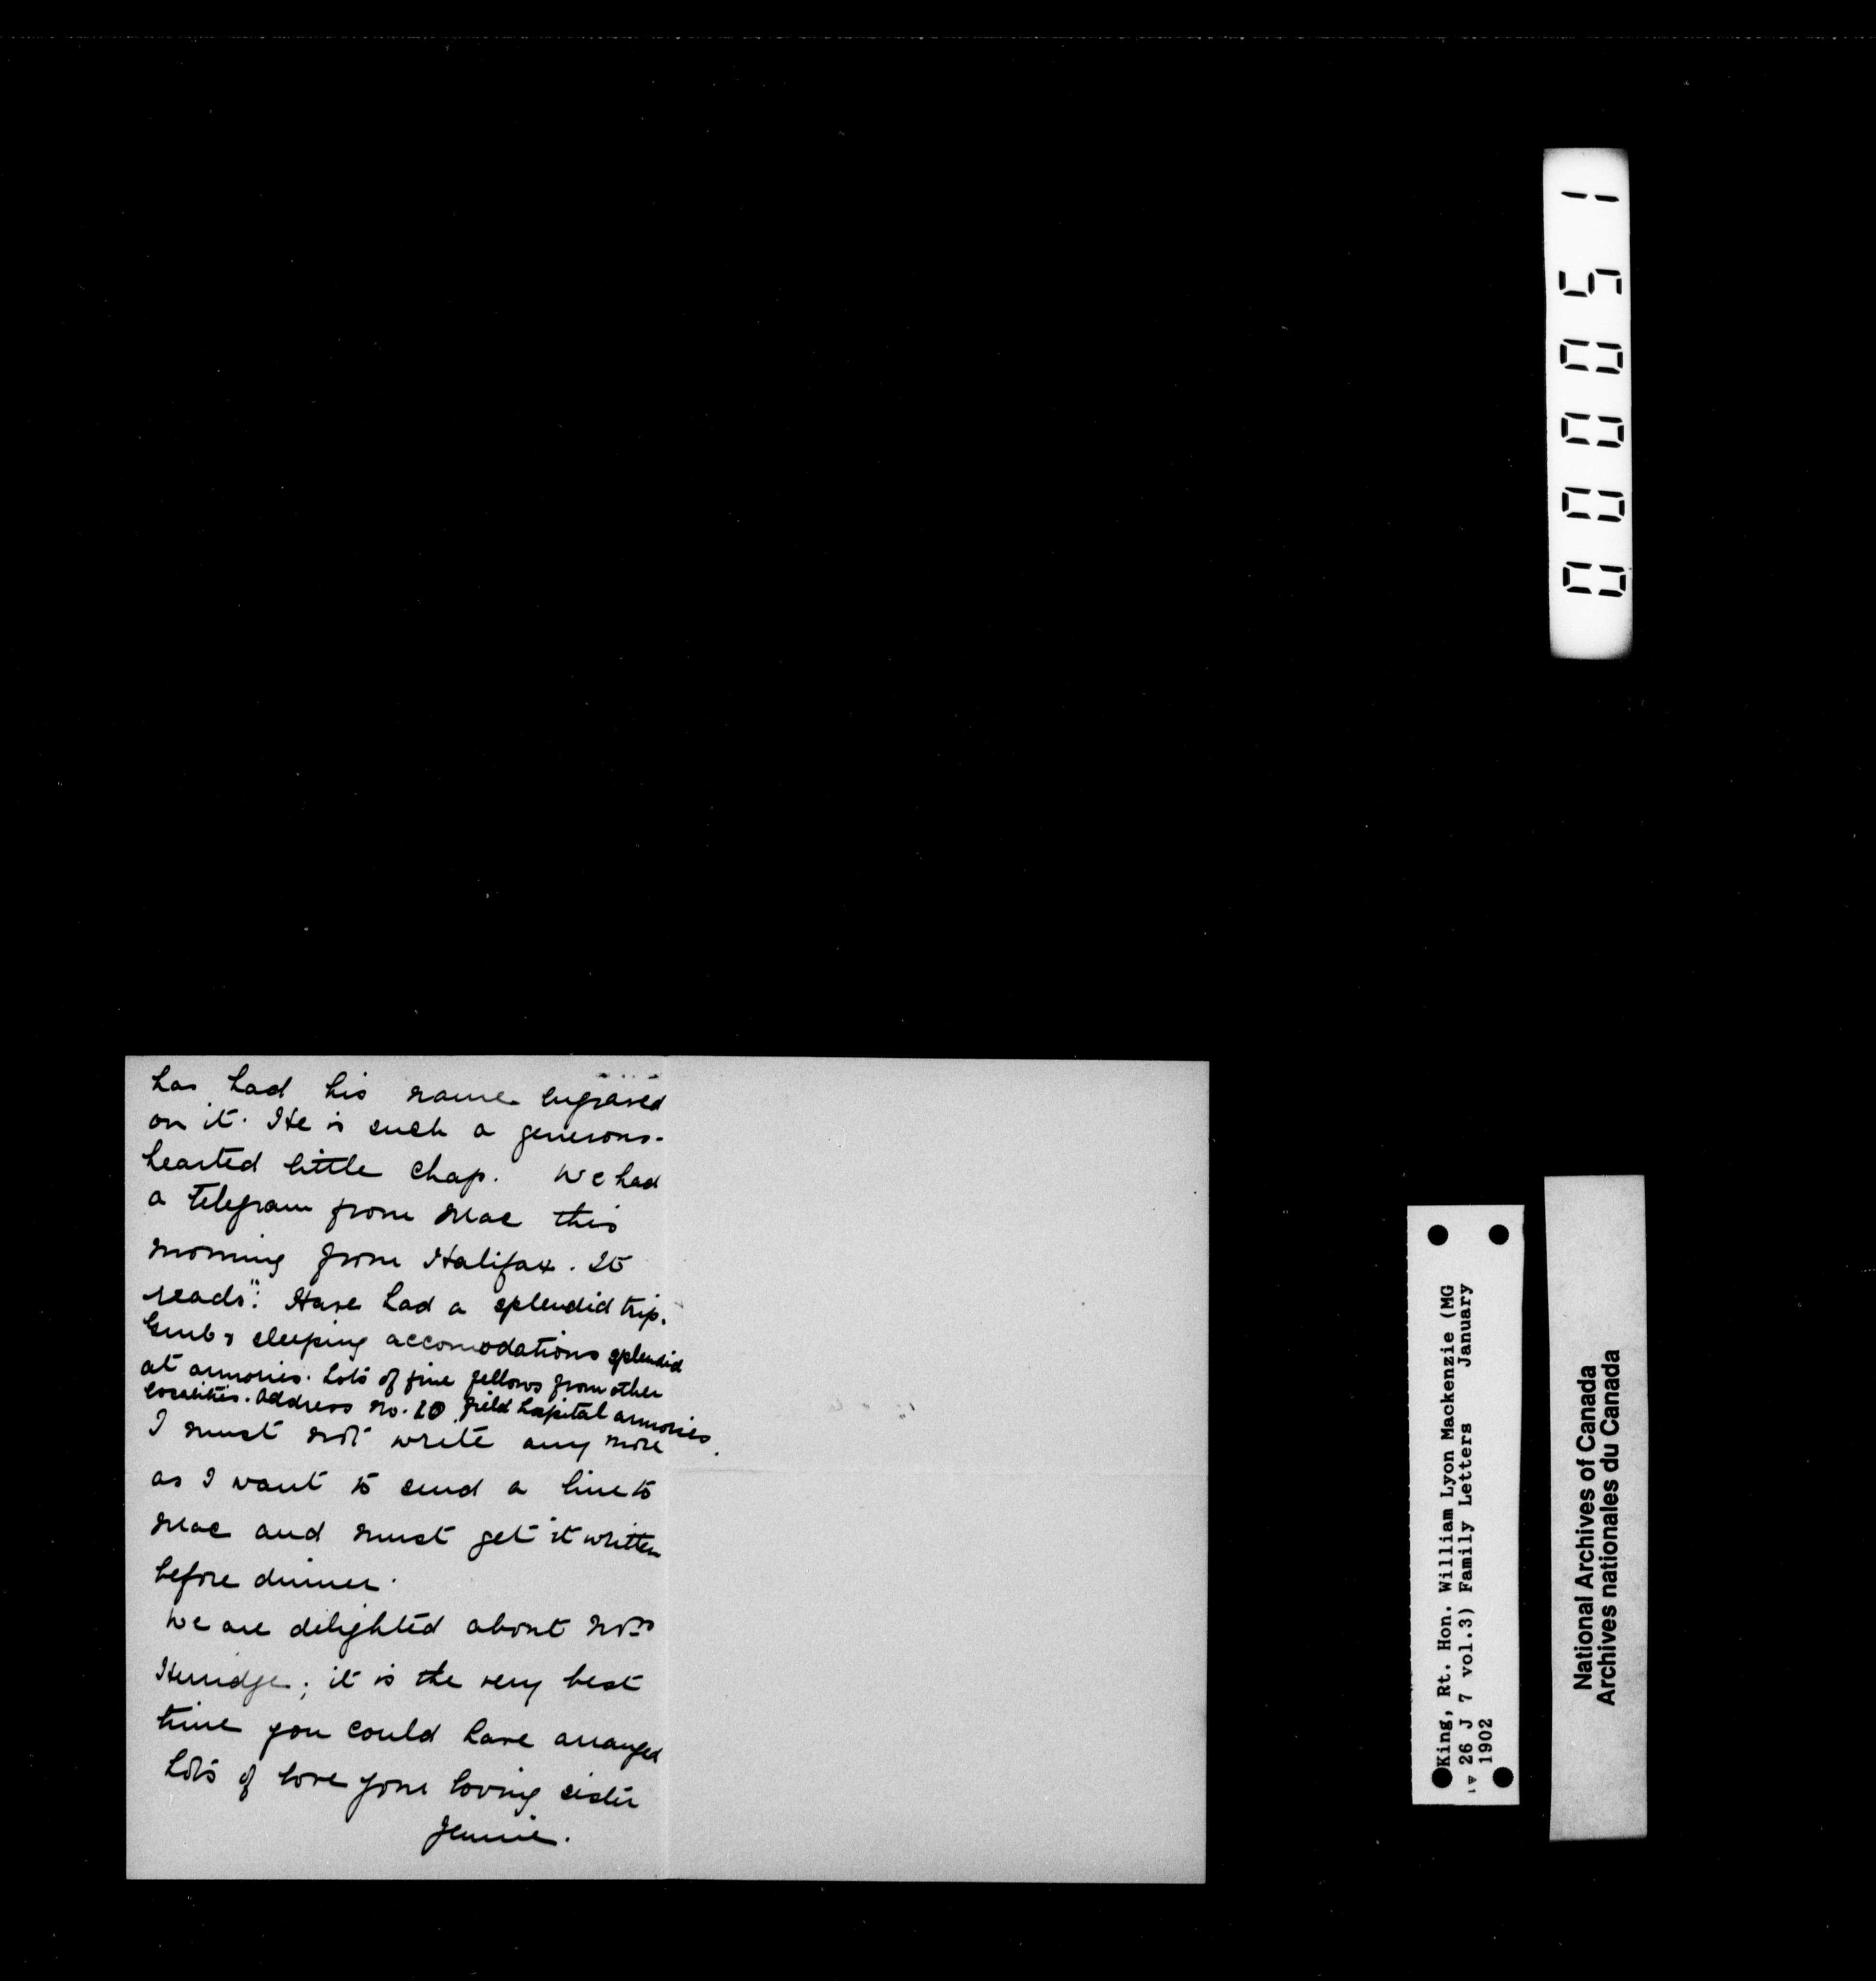 has had his name engraved
on it. He is such a generous-
hearted little chap. We had
a telegram from Mac this
morning from Halifax. It
reads: "Have had a splendid trip.
Grub & sleeping accomodations splendid
at armories. Lots of fine fellows from other
localities. Address No. 10 field hospital armories.
I must not write any more
as I want to send a line to
Mac and must get it written
before dinner.
We are delighted about Mrs
Herridge; it is the very best
time you could have arranged
Lots of love your loving sister
Jennie.
000051
King, Rt. Hon. William Lyon Mackenzie (MG
26 J 7 vol.3) Family Letters January
1902
National Archives of Canada
Archives nationales du Canada